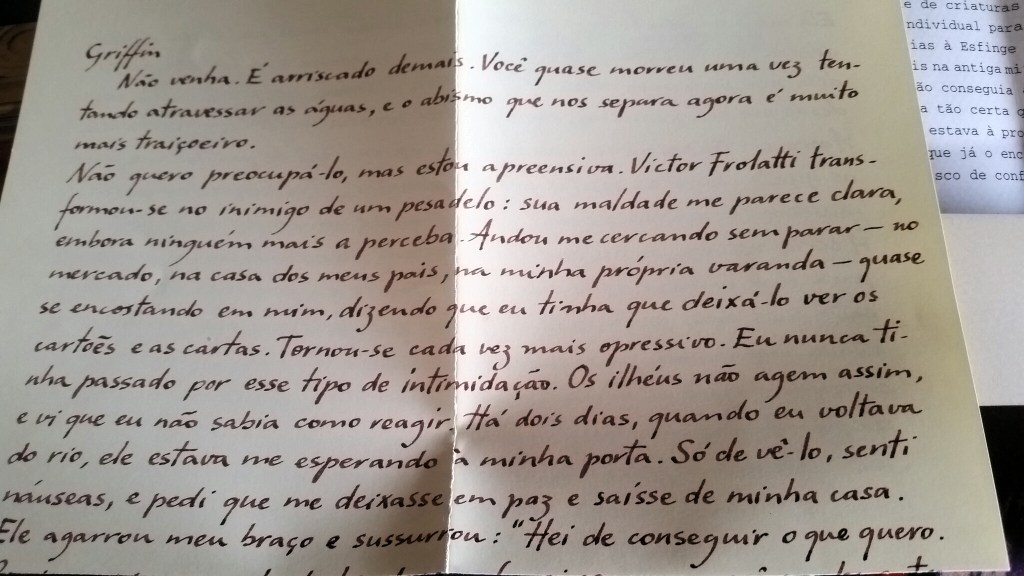 Griffin
Não venha. É arriscado demais. Você quase morreu uma vez ten-
tando atravessar as águas, e o abismo que nos separa agora é muito
mais traiçoeiro.
Não quero preocupá-lo, mas estou apreensiva. Victor Frolatti trans-
formou-se no inimigo de um pesadelo: sua maldade me parece clara,
embora ninguém mais a perceba. Andou me cercando sem parar — no
mercado, na casa dos meus pais, na minha própria varanda — quase
se encostando em mim, dizendo que eu tinha que deixá-lo ver os
cartões e as cartas. Tornou-se cada vez mais opressivo. Eu nunca ti-
nha passado por esse tipo de intimidação. Os ilhéus não agem assim,
e vi que eu não sabia como reagir. Há dois dias, quando eu voltava
do rio, ele estava me esperando à minha porta. Só de vê-lo, senti
náuseas, e pedi que me deixasse em paz e saísse de minha casa.
Ele agarrou meu braço e sussurrou: "Hei de conseguir o que quero.
e de criaturas
ndividual para
ias à Esfinge
is na antiga mi
ão conseguia
a tão certa
estava à pro
que já o enc
sco de conf